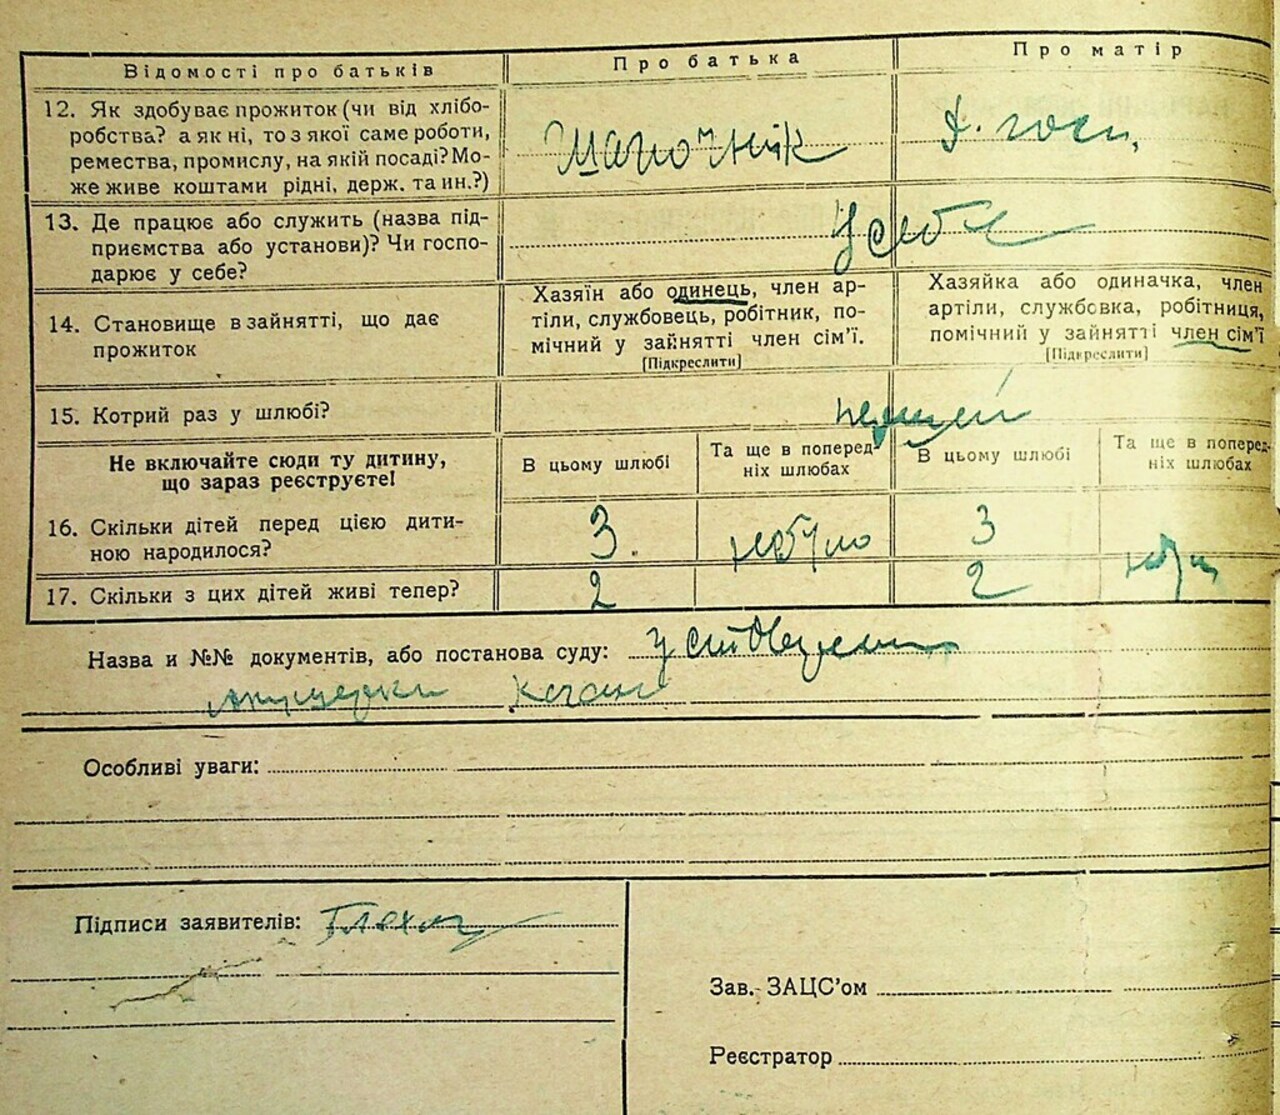 Відомості про батьків
Про батька
Про матір
12. Як здобуває прожиток (чи від хлібо-
робства? а як ні, то з якої саме роботи,
ремества, промислу, на якій посаді? Мо-
же живе коштами рідні, держ. та ин.?)
Шапочник
д. госп.
13. Де працює або служить (назва під-
приємства або установи)? Чи госпо-
дарює у себе?
У себе
14. Становище в зайнятті, що дає
прожиток
Хазяїн або одинець, член ар-
тіли, службовець, робітник, по-
мічний у зайнятті член сім'ї.
[Підкреслити]
Хазяйка або одиначка, член
артіли, службовка, робітниця,
помічний у зайнятті член сім'ї
[Підкреслити]
15. Котрий раз у шлюбі?
Не включайте сюди ту дитину,
що зараз реєструєте!
В цьому шлюбі
Та ще в поперед-
ніх шлюбах
В цьому шлюбі
Та ще в поперед-
ніх шлюбах
16. Скільки дітей перед цією дити-
ною народилося?
3
не було
3
17. Скільки з цих дітей живі тепер?
2
2
Назва и №№ документів, або постанова суду:
акушерки Каган
Особливі уваги:
Підписи заявителів:
Зав. ЗАЦС'ом
Реєстратор